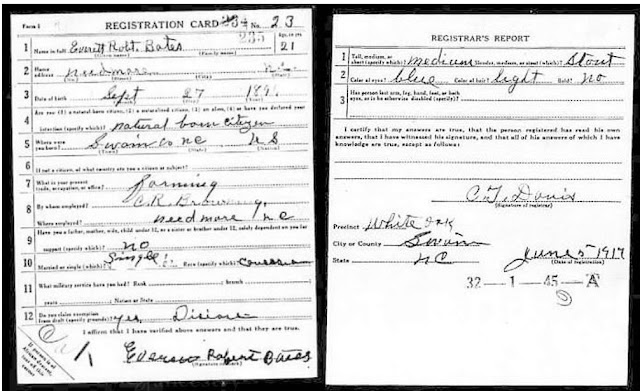 Form 1
REGISTRATION CARD 234 No. 23
235
1 Name in full Everett Robt. Bates Age, in yrs 21
(Given name) (Family name)
2 Home address Needmore N.C.
(No.) (Street) (City) (State)
3 Date of birth Sept 27
(Month) (Day) (Year)
4 Are you (1) a natural born citizen, (2) a naturalized citizen, (3) an alien, (4) or have you declared your
intention (specify which)? natural born citizen
5 Where were you born? Swain Co NC U S
(Town) (State) (Nation)
6 If not a citizen, of what country are you a citizen or subject?
7 What is your present trade, occupation, or office? Farming
8 By whom employed? C.R.
Where employed? needmore n c
9 Have you a father, mother, wife, child under 12, or a sister or brother under 12, solely dependent on you for
support (specify which)? no
10 Married or single (which)? Single Race (specify which)?
11 What military service have you had? Rank ; branch
years ; Nation or State
12 Do you claim exemption from draft (specify grounds)? yes
I affirm that I have verified above answers and that they are true.
Robert Bates
(Signature or mark)
If person is of African descent, tear off this corner
REGISTRAR'S REPORT
1 Tall, medium, or short (specify which)? medium Slender, medium, or stout (which)? Stout
2 Color of eyes? blue Color of hair? light Bald? no
3 Has person lost arm, leg, hand, foot, or both
eyes, or is he otherwise disabled (specify)?
I certify that my answers are true, that the person registered has read his own
answers, that I have witnessed his signature, and that all of his answers of which I
have knowledge are true, except as follows:
C.T. Davis
(Signature of registrar)
Precinct White Oak
City or County Swain
State NC June 5 1917
(Date of registration)
32-1-45-A